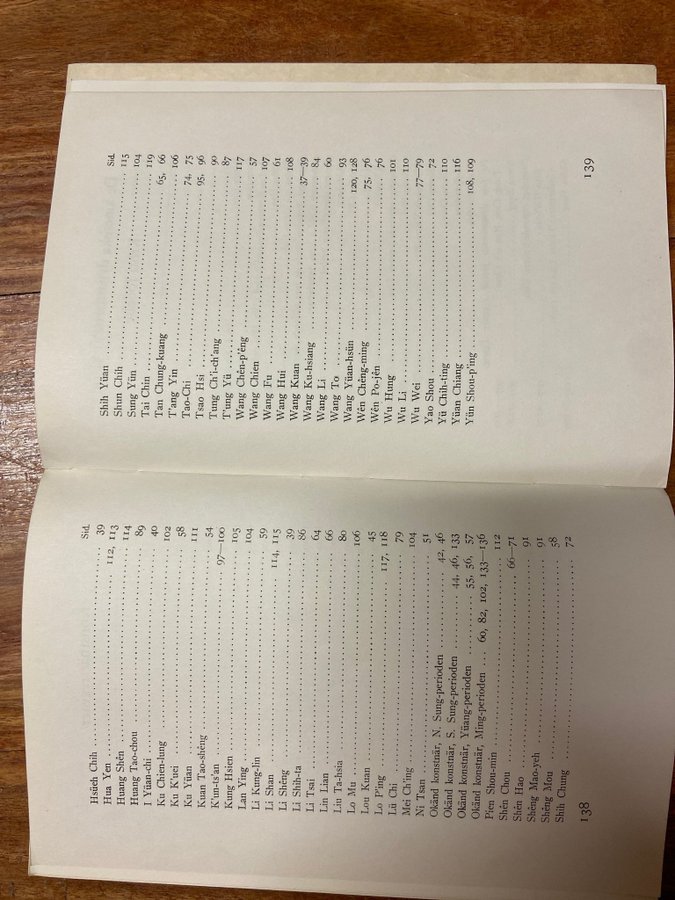 Sid.
Hsüeh Chih 39
Hua Yen 112, 113
Huang Shên 114
Huang Tao-chou 89
I Yüan-chi 40
Ku Chien-lung 102
Ku K'uei 58
Ku Yüan 111
Kuan Tao-shêng 54
K'un-ts'an 97—100
Kung Hsien 105
Lan Ying 104
Li Kung-lin 59
Li Shan 114, 115
Li Shêng 39
Li Shih-ta 86
Li Tsai 64
Lin Lian 66
Liu Ta-hsia 80
Lo Mu 106
Lou Kuan 45
Lo P'ing 117, 118
Lü Chi 79
Mei Ch'ing 104
Ni Tsan 51
Okänd konstnär, N. Sung-perioden 42, 46
Okänd konstnär, S. Sung-perioden 44, 46, 133
Okänd konstnär, Yüang-perioden 55, 56, 57
Okänd konstnär, Ming-perioden 60, 82, 102, 133—136
Pien Shou-min 112
Shên Chou 66—71
Shên Hao 91
Shêng Mao-yeh 91
Shêng Mou 58
Shih Chung 72
138
Sid.
Shih Yüan 115
Shun Chih 104
Sung Yün 119
Tai Chin 65, 66
Tan Chung-kuang 106
T'ang Yin 74, 75
Tao-Chi 95, 96
Tsao Hsi 90
Tung Ch'i-ch'ang 87
T'ung Yü 117
Wang Chên-p'êng 57
Wang Chien 107
Wang Fu 61
Wang Hui 108
Wang Kuan 37—39
Wang Ku-hsiang 84
Wang Li 60
Wang To 93
Wang Yüan-hsün 120, 128
Wên Chêng-ming 75, 76
Wên Po-jên 76
Wu Hung 101
Wu Li 110
Wu Wei 77—79
Yao Shou 72
Yü Chih-ting 110
Yüan Chiang 116
Yün Shou-p'ing 108, 109
139